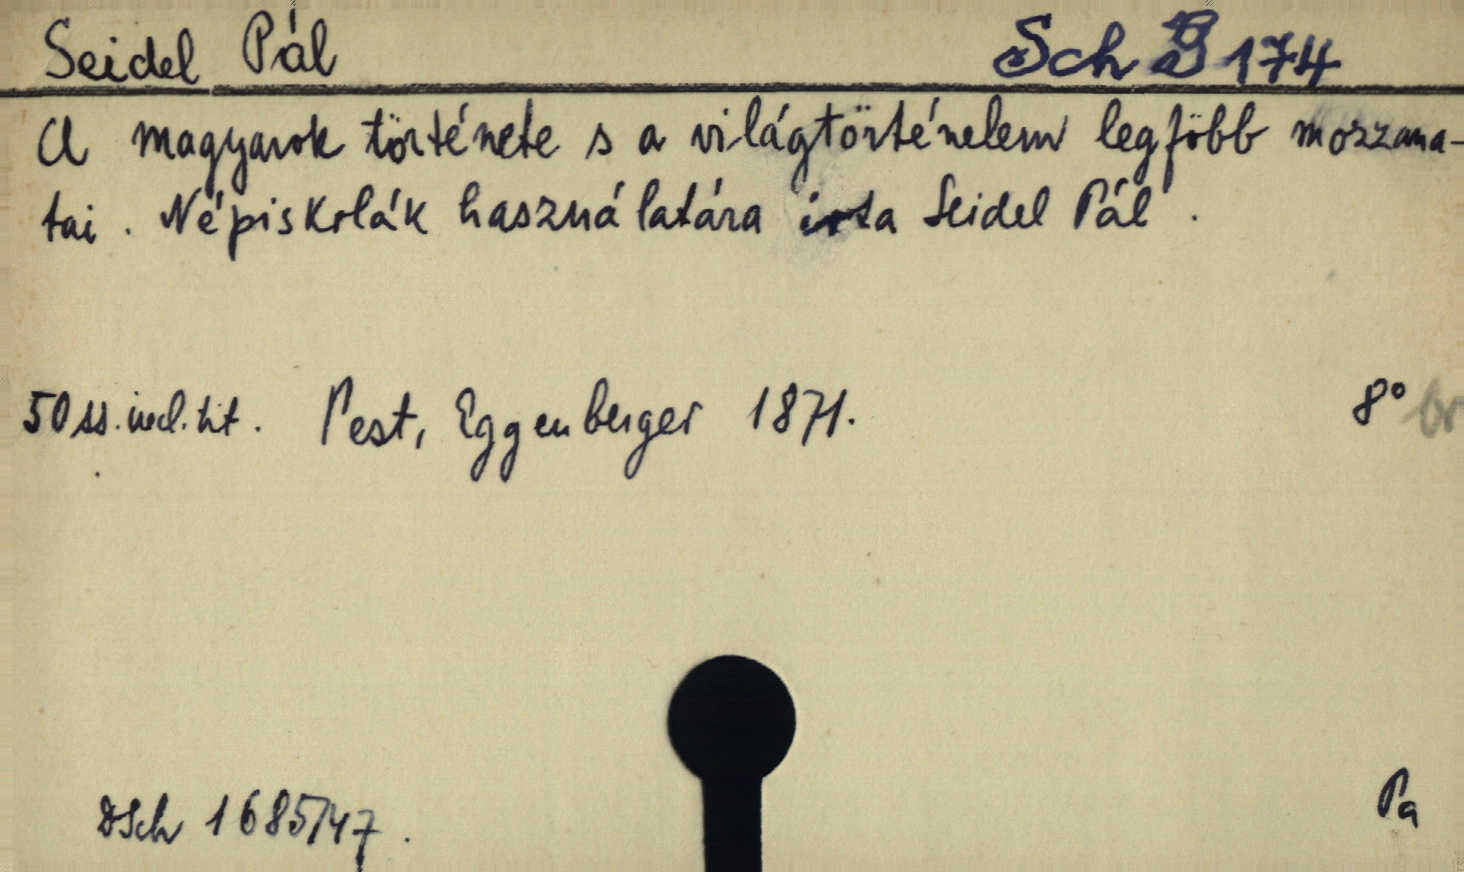 Seidel Pál Sch B 174
A magyarok története s a világtörténelem legföbb mozzana-
tai. Népiskolák használatára irta Seidel Pál.
50 ss. incl. tit. Pest, Eggenberger 1871. 8° br
DSch 1685/47.
Pa